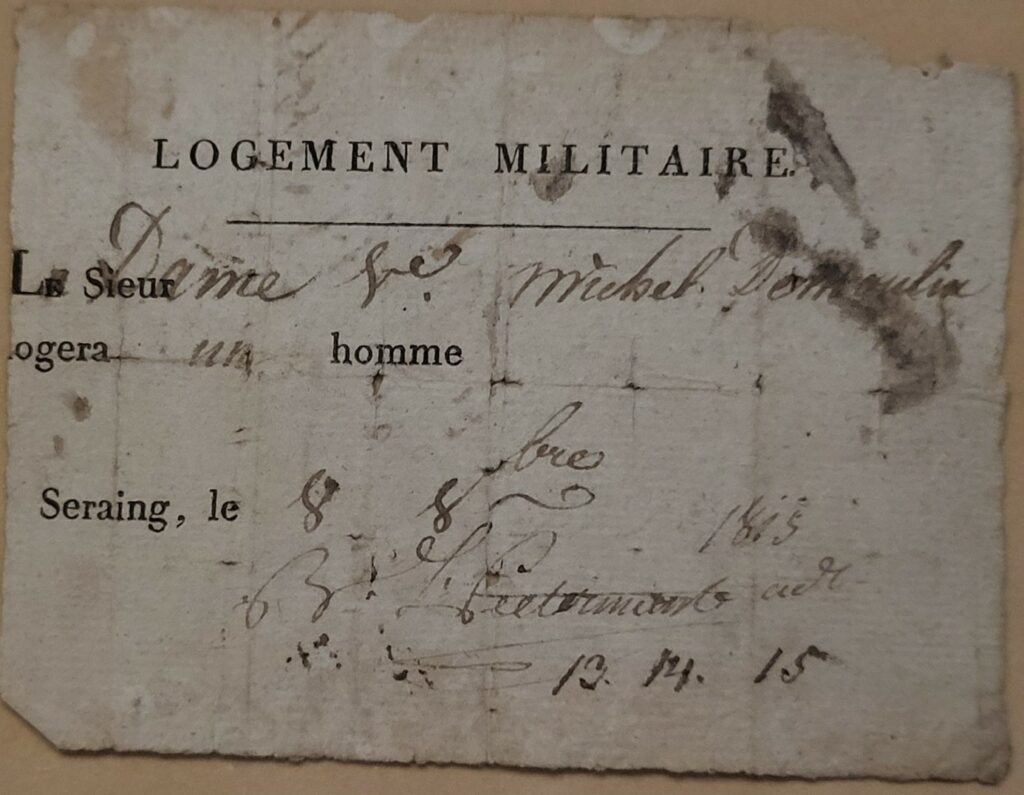 LOGEMENT MILITAIRE.
LE Sieur Dame Ve. Michel Domoulin
ogera un homme
Seraing, le 8 8bre 1815
13. 14. 15